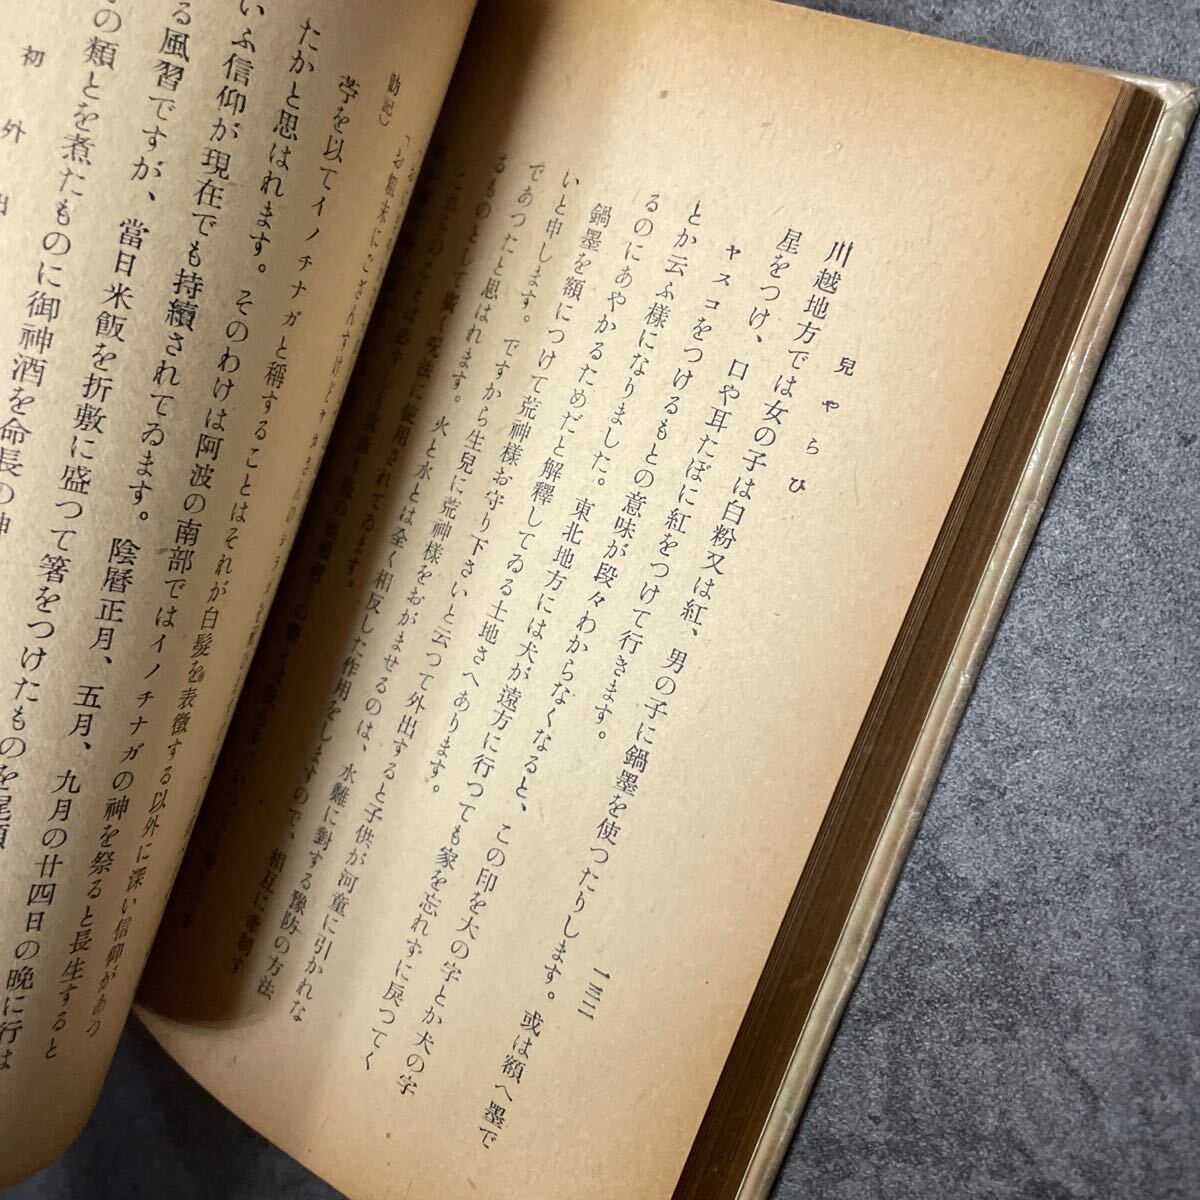 兒やらひ
一三二
川越地方では女の子は白粉又は紅、男の子に鍋墨を使つたりします。或は額へ墨で
星をつけ、口や耳たぼに紅をつけて行きます。
ヤスコをつけるもとの意味が段々わからなくなると、この印を大の字とか犬の字
とか云ふ様になりました。東北地方には犬が遠方に行つても家を忘れずに戻つてく
るのにあやかるためだと解釋してゐる土地さへあります。
鍋墨を額につけて荒神様お守り下さいと云つて外出すると子供が河童に引かれな
いと申します。ですから生兒に荒神様をおがませるのは、水難に對する豫防の方法
であつたと思はれます。火と水とは全く相反した作用をしますので、相互に牽制す
るものとして廣く呪法に使用されてゐます。
勸記)
苧を以てイノチナガと稱することはそれが白髮を表徴する以外に深い信仰があつ
たかと思はれます。そのわけは阿波の南部ではイノチナガの神を祭ると長生すると
いふ信仰が現在でも持續されてゐます。陰曆正月、五月、九月の廿四日の晩に行は
る風習ですが、當日米飯を折敷に盛つて箸をつけたものを尾頭
の類とを煮たものに御神酒を命長の神
初外出